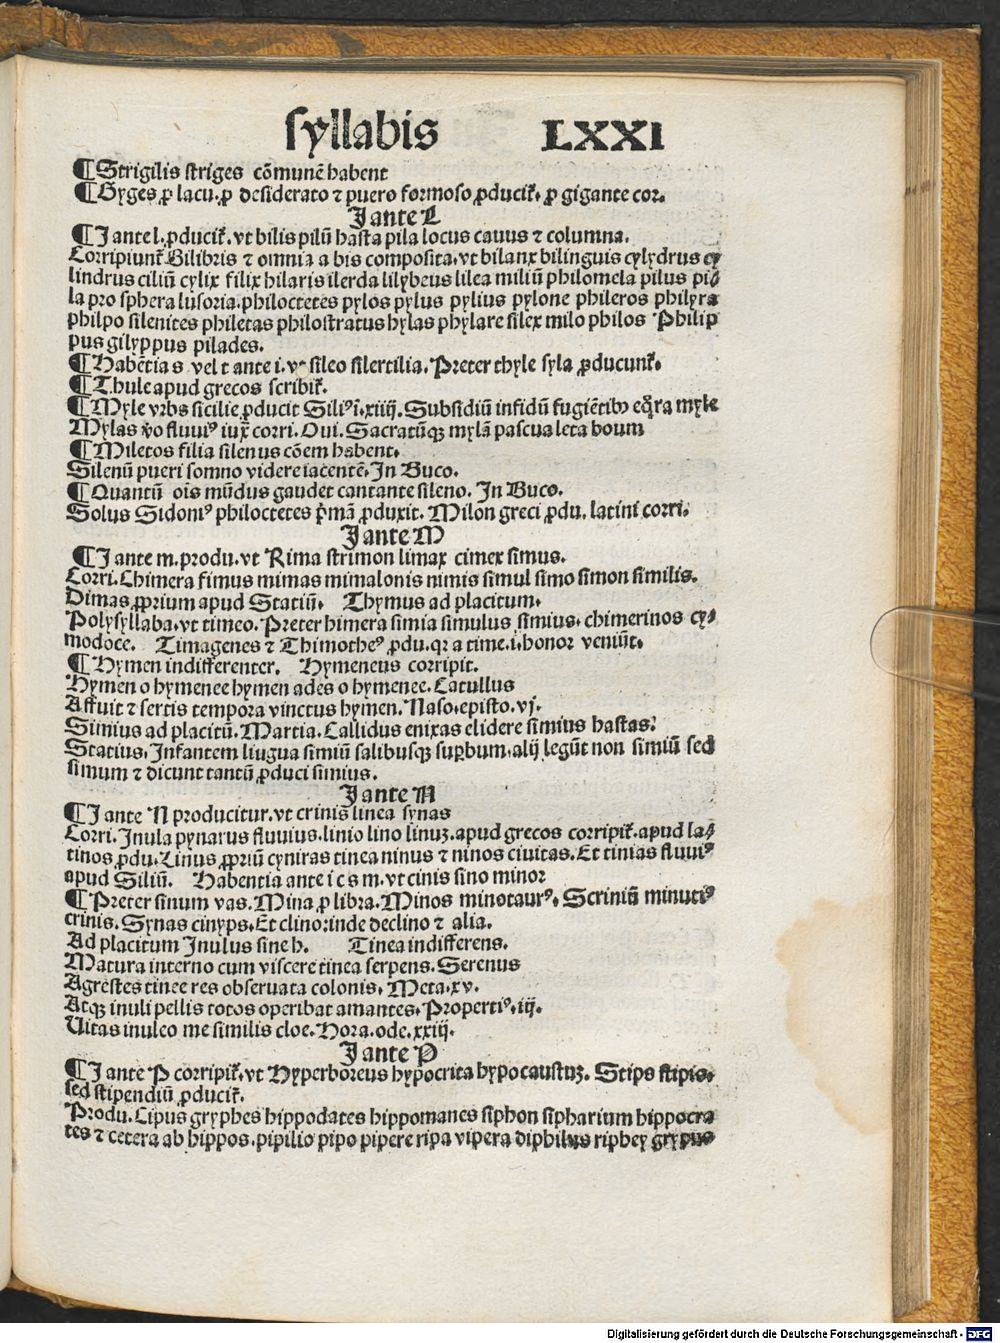 syllabis LXXI
¶Strigilis striges cōmunē habent
¶Gyges ꝓ lacu. ꝓ desiderato ⁊ puero formoso ꝓduciť. ꝓ gigante cor.
I ante L
¶I ante l. ꝓduciť. vt bilis pilū hasta pila locus cauus ⁊ columna.
Corripiunť Bilibris ⁊ omnia a bis composita. vt bilanx bilinguis cylydrus cy
lindrus ciliū cylix filix hilaris ilerda lilybeus lilea miliū philomela pilus pi⸗
la pro sphera lusoria. philoctetes pylos pylus pylius pylone phileros philyra
philpo silenites philetas philostratus hylas phylare silex milo philos Philip
pus gilyppus pilades.
¶Habētia s vel t ante i. vt sileo silertilia. Preter thyle syla ꝓducunť.
¶Thule apud grecos scribiť.
¶Myle vrbs sicilie ꝓducit Siliꝰ ī. xiiij. Subsidiū infidū fugiētibꝫ eq̄ra myle
Mylas v̄o fluuiꝰ iux̄ corri. Oui. Sacratūqꝫ mylā pascua leta boum
¶Miletos filia silenus cōem habent.
Silenū pueri somno videre iacentē. In Buco.
¶Quantū ois mūdus gaudet cantante sileno. In Buco.
Solus Sidoniꝰ philoctetes p̄mā ꝓduxit. Milon greci ꝓdu. latini corri.
I ante M
¶I ante m. produ. vt Rima strimon limax cimex simus.
Corri. Chimera fimus mimas mimalonis nimis simul simo simon similis.
Dimas ꝓprium apud Statiū. Thymus ad placitum.
Polysyllaba. vt timeo. Preter himera simia simulus simius. chimerinos cy⸗
modoce. Timagenes ⁊ Thimotheꝰ ꝓdu. qr a time. i. honor veniūt.
¶Hymen indifferenter. Hymeneus corripit.
Hymen o hymenee hymen ades o hymenee. Catullus
Affuit ⁊ sertis tempora vinctus hymen. Naso. episto. vj.
Simius ad placitū. Martia. Callidus enixas elidere simius hastas.
Statius. Infantem liugua simiū salibusqꝫ suꝑbum. alij legūt non simiū sed
simum ⁊ dicunt tantū ꝓduci simius.
I ante N
¶I ante N producitur. vt crinis linea synas
Corri. Inula pynarus fluuius. linio lino linuꝫ. apud grecos corripiť. apud la⸗
tinos ꝓdu. Linus ꝓpriū cyniras tinea ninus ⁊ ninos ciuitas. Et tinias fluuiꝰ
apud Siliū. Habentia ante i c s m. vt cinis sino minor
¶Preter sinum vas. Mina ꝓ libra. Minos minotaurꝰ. Scriniū minutiꝰ
crinis. Synas cinyps. Et clino: inde declino ⁊ alia.
Ad placitum Inulus sine h. Tinea indifferens.
Matura interno cum viscere tinea serpens. Serenus
Agrestes tinee res obseruata colonis. Meta. xv.
Atqꝫ inuli pellis totos operibat amantes. Propertiꝰ. iij.
Uitas inuleo me similis cloe. Hora. ode. xxiij.
I ante P
¶I ante P corripiť. vt Hyperboreus hypocrita hypocaustuꝫ. Stips stipis.
sed stipendiū ꝓduciť.
Produ. Cipus gryphes hippodates hippomanes siphon sipharium hippocra
tes ⁊ cetera ab hippos. pipilio pipo pipere ripa vipera diphilus riphey grypus
Digitalisierung gefördert durch die Deutsche Forschungsgemeinschaft - DFG